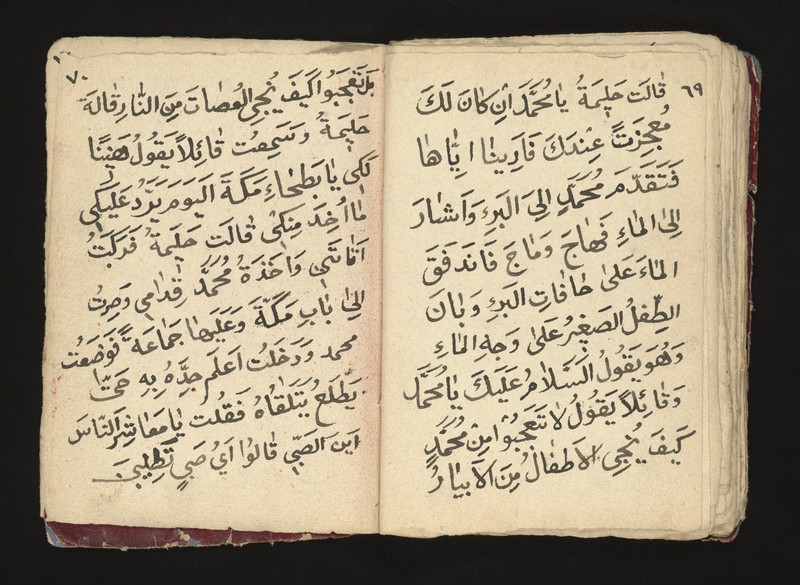 ٦٩
قالت حليمة يا محمد ان كان لك
معجزتً عندك فارينا اياها
فتقدم محمد الى البر واشار
الى الماء فهاج وماج فاندفق
الماء على حافات البر وبان
الطفل الصغير على وجه الماء
وهو يقول السلام عليك يا محمد
وقائلاً يقول لا تعجبوا من محمد
كيف ينجى الاطفال من الابيار
٧٠
بل تعجبوا كيف ينجى العصات من النار قالة
حليمة وسمعت قائلاً يقول هنيئا
لكى يا بطحاء مكة اليوم يرد عليكى
ما اخد منكى قالت حليمة فركبت
اتانتى واخذة محمد قدامى وصرت
الى باب مكة وعليها جماعة فوضعت
محمد ودخلت اعلم جده به حتا
يطلع يتلقاه فقلت يا معاشر الناس
اين الصبي قالوا اي صبي تطلبين